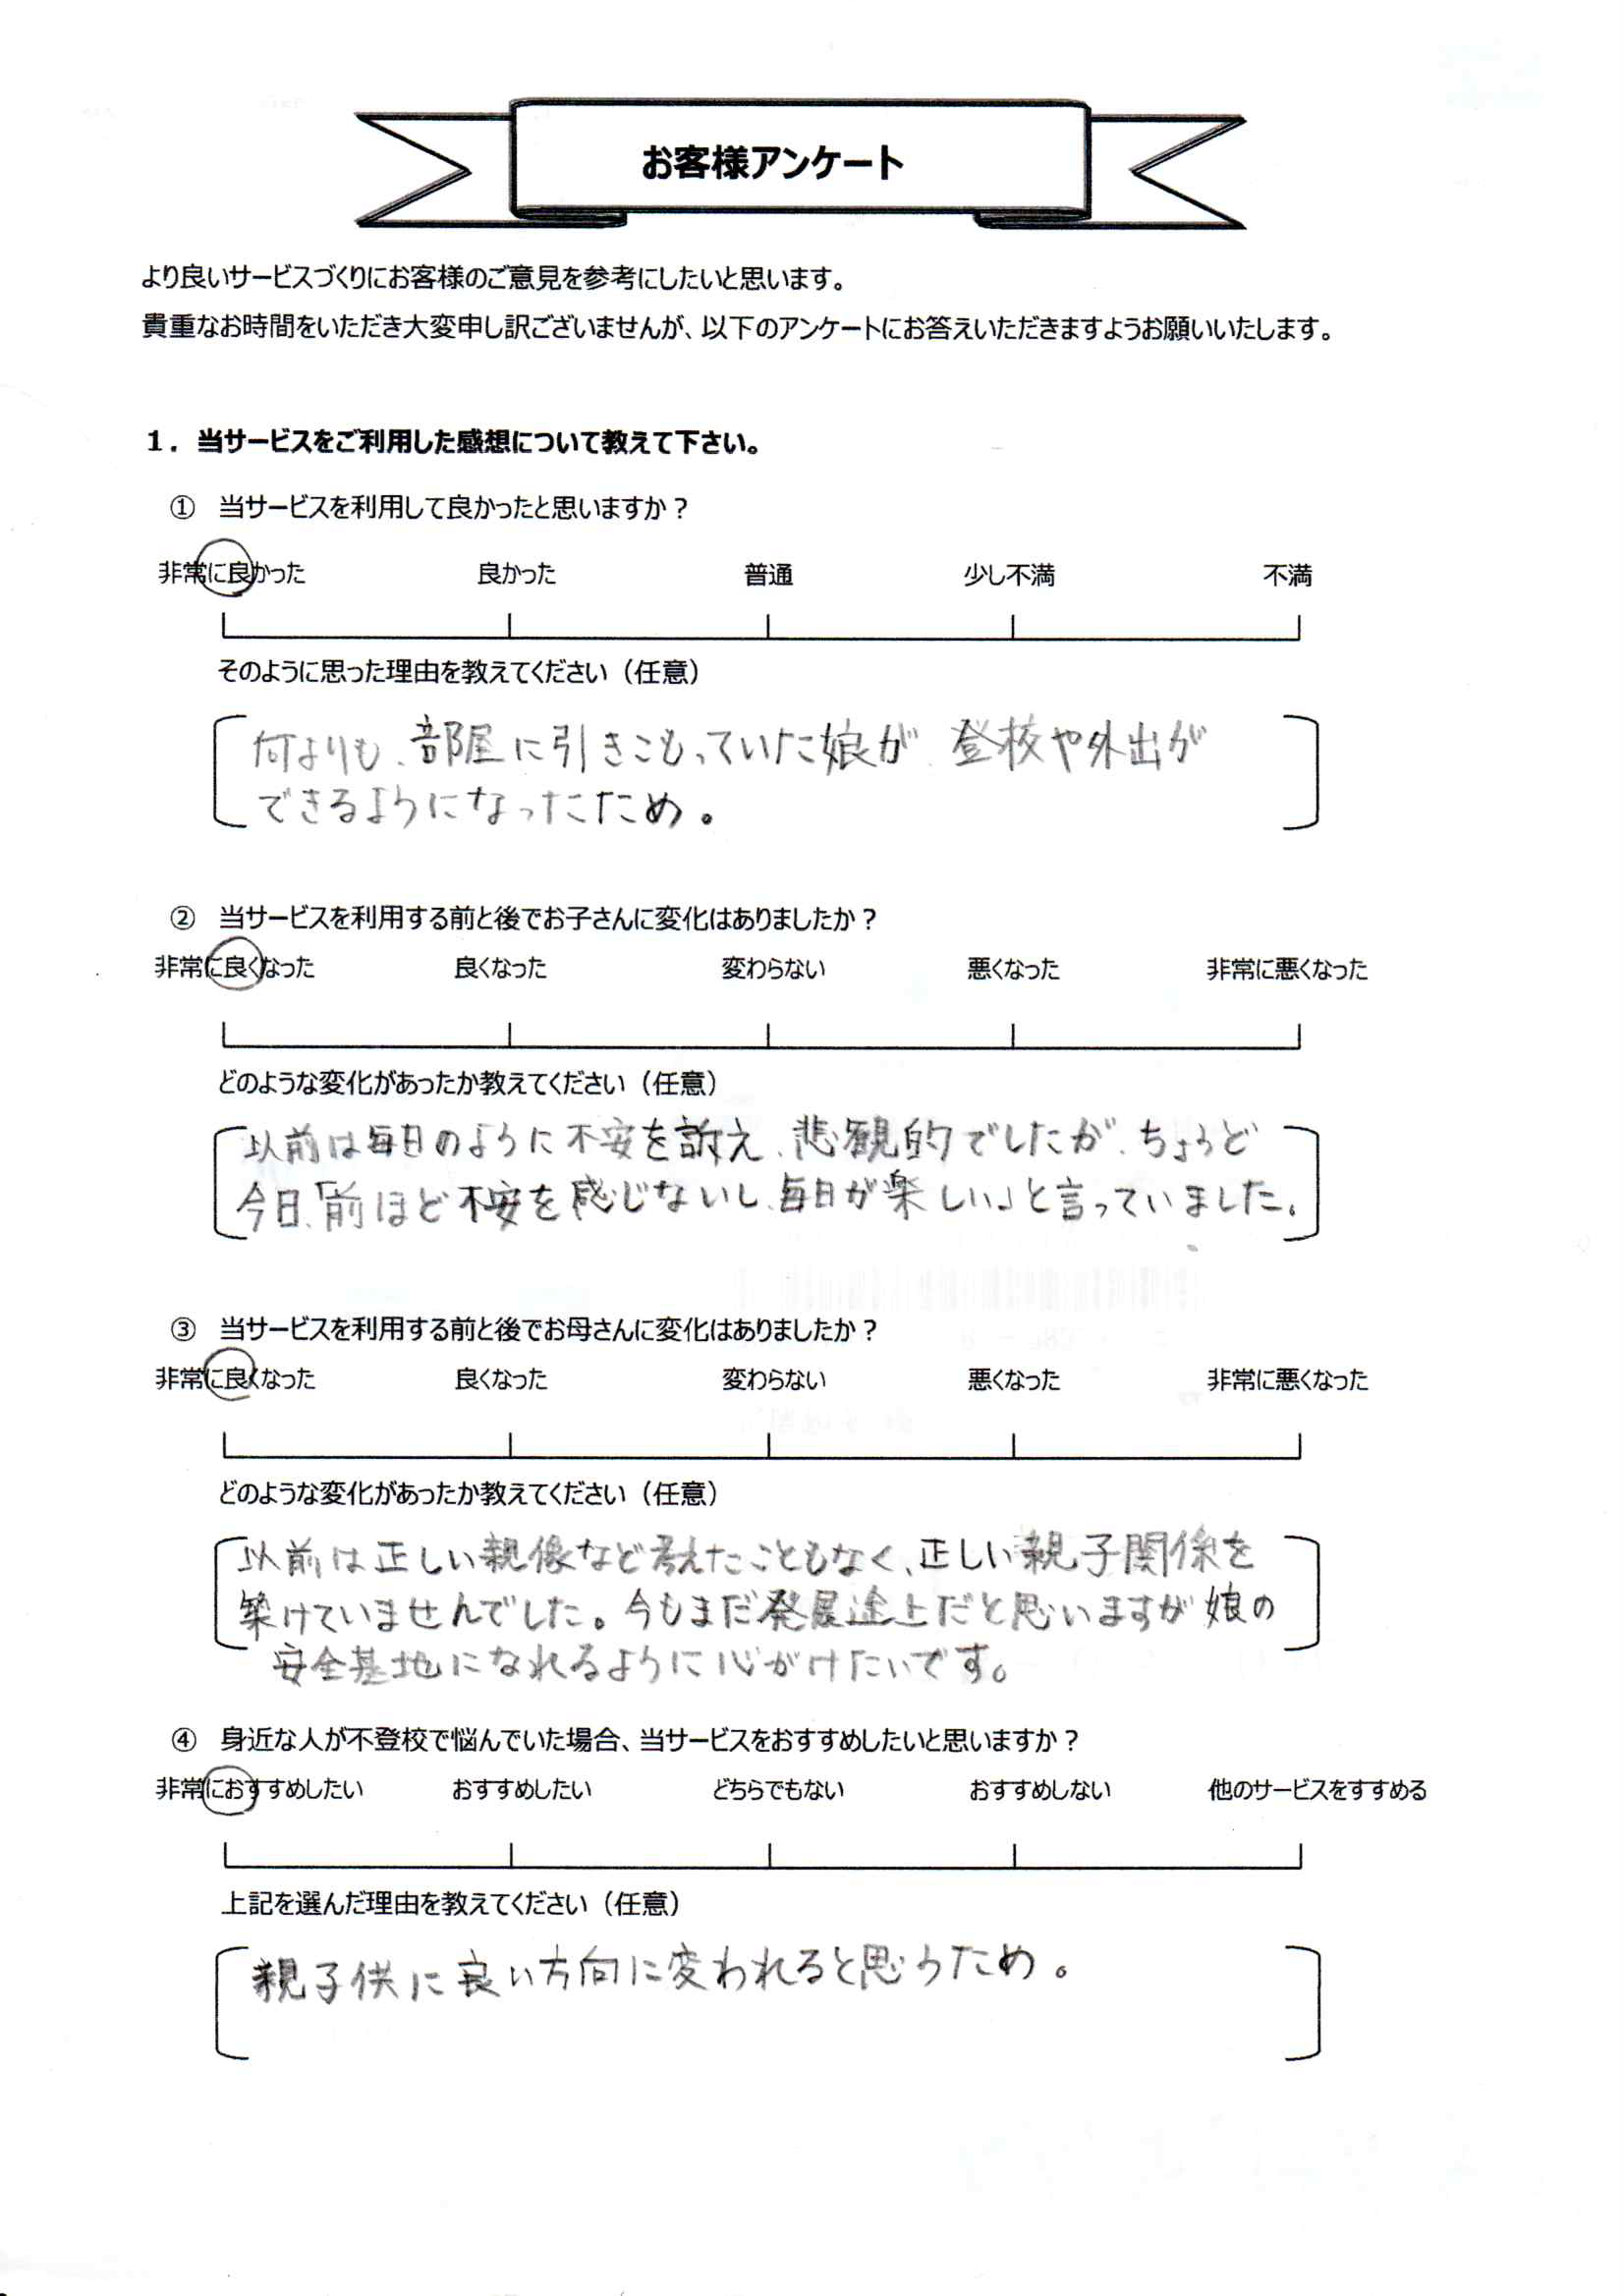 お客様アンケート
より良いサービスづくりにお客様のご意見を参考にしたいと思います。
貴重なお時間をいただき大変申し訳ございませんが、以下のアンケートにお答えいただきますようお願いいたします。
1．当サービスをご利用した感想について教えて下さい。
① 当サービスを利用して良かったと思いますか？
非常に良かった 良かった 普通 少し不満 不満
そのように思った理由を教えてください（任意）
何よりも、部屋に引きこもっていた娘が、登校や外出が
できるようになったため。
② 当サービスを利用する前と後でお子さんに変化はありましたか？
非常に良くなった 良くなった 変わらない 悪くなった 非常に悪くなった
どのような変化があったか教えてください（任意）
以前は毎日のように不安を訴え、悲観的でしたが、ちょうど
今日、「前ほど不安を感じないし、毎日が楽しい」と言っていました。
③ 当サービスを利用する前と後でお母さんに変化はありましたか？
非常に良くなった 良くなった 変わらない 悪くなった 非常に悪くなった
どのような変化があったか教えてください（任意）
以前は正しい親像など考えたこともなく、正しい親子関係を
築けていませんでした。今もまだ発展途上だと思いますが娘の
安全基地になれるように心がけたいです。
④ 身近な人が不登校で悩んでいた場合、当サービスをおすすめしたいと思いますか？
非常におすすめしたい おすすめしたい どちらでもない おすすめしない 他のサービスをすすめる
上記を選んだ理由を教えてください（任意）
親子供に良い方向に変われると思うため。